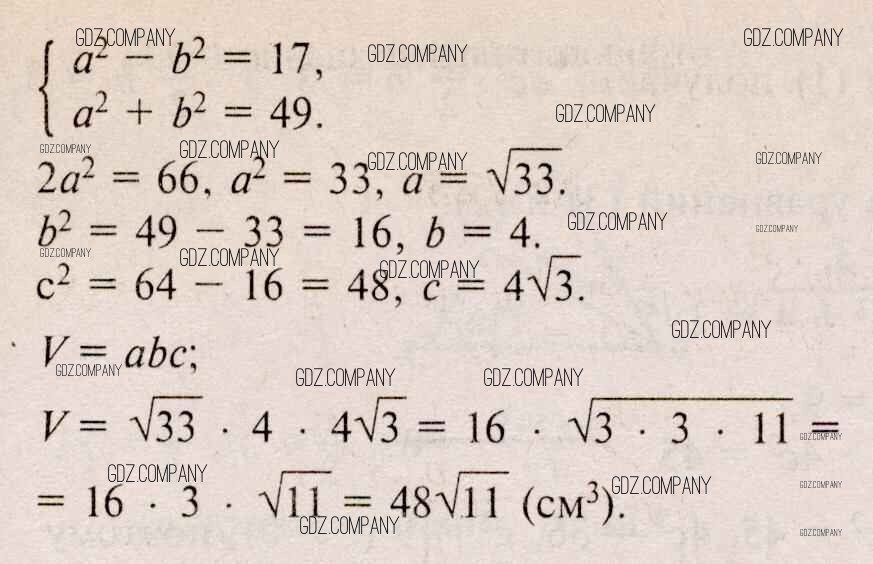 GDZ.COMPANY GDZ.COMPANY
a² − b² = 17, GDZ.COMPANY
a² + b² = 49. GDZ.COMPANY
GDZ.COMPANY GDZ.COMPANY GDZ.COMPANY GDZ.COMPANY
2a² = 66, a² = 33, a = √33.
b² = 49 − 33 = 16, b = 4. GDZ.COMPANY GDZ.COMPANY
GDZ.COMPANY GDZ.COMPANY GDZ.COMPANY
c² = 64 − 16 = 48, c = 4√3.
GDZ.COMPANY
V = abc;
GDZ.COMPANY GDZ.COMPANY GDZ.COMPANY
V = √33 · 4 · 4√3 = 16 · √3 · 3 · 11 =
GDZ.COMPANY
GDZ.COMPANY GDZ.COMPANY GDZ.COMPANY
= 16 · 3 · √11 = 48√11 (см³).
GDZ.COMPANY GDZ.COMPANY